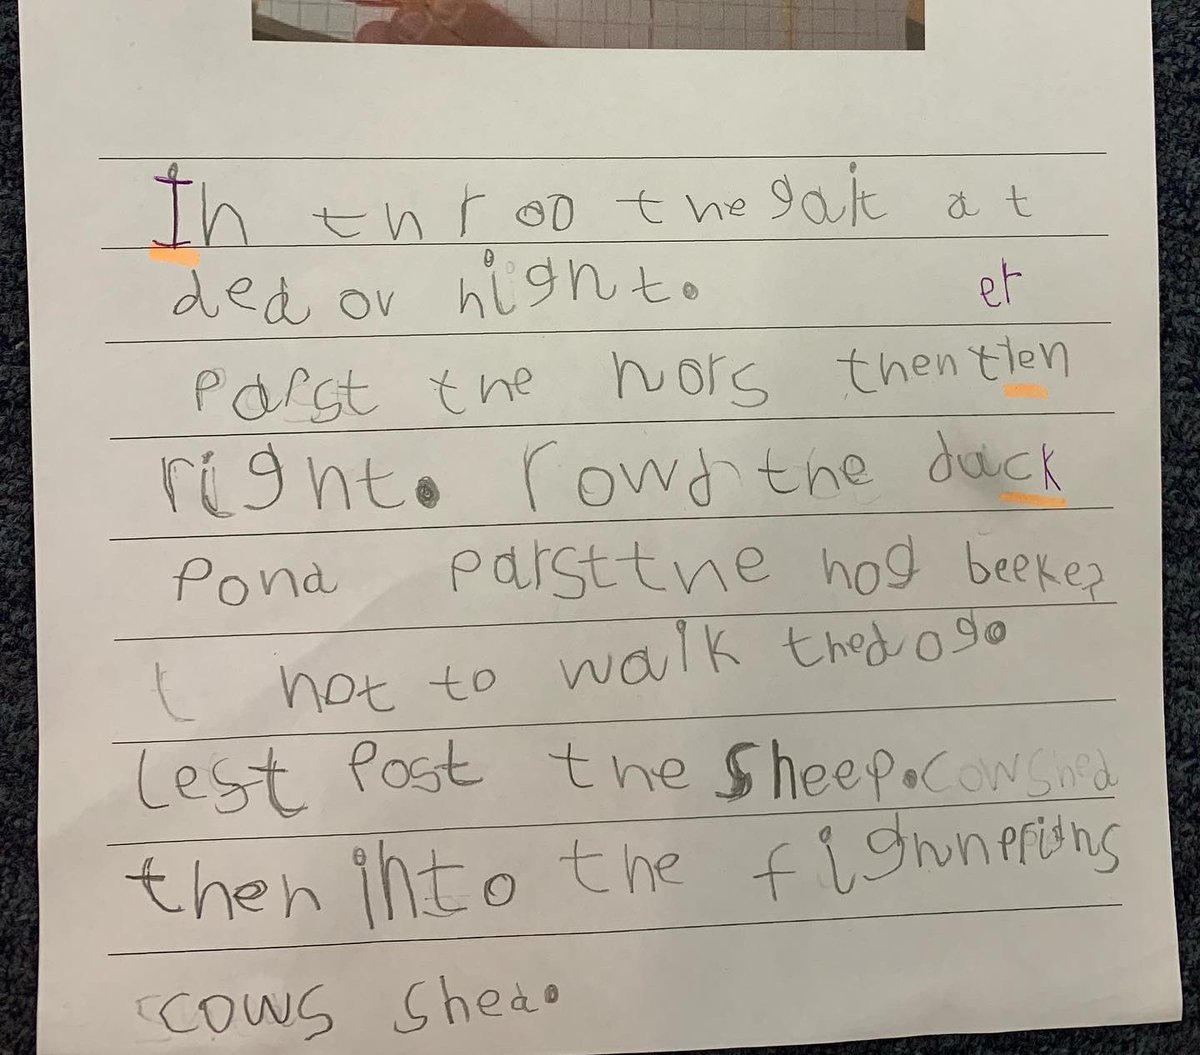 In throo the gait at
ded ov night.
er
parst the hors then tlen
right. rownd the duck
Pond parst the hog beeke
t not to walk the dogo
lest post the sheep. cowshed
then into the
cows shed.